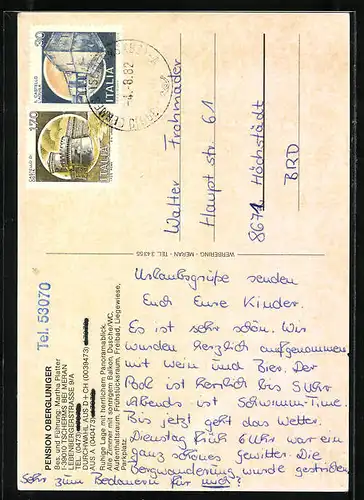 30
S. CASTELLO
ITALIA
-4.-8.82
170
ITALIA
Walter Frohmader
Haupt str 61
8671 Höchstädt
BRD
WERBERING - MERAN - TEL. 34355
Tel. 53070
PENSION OBERGLUNIGER
Bes. und Führung: Martha Platter
I-39010 TSCHERMS BEI MERAN
LEBENBERGERSTRASSE 9/A
TEL. (0473)
DURCHWAHL AUS D + CH (0039473)
AUS A (040473)
Ruhige Lage mit herrlichem Panoramablick.
Alle Zimmer mit sonnigem Balkon, Dusche/WC.
Aufenthaltsraum, Frühstücksraum, Freibad, Liegewiese,
Parkplatz.
Urlaubsgrüße senden
Euch Eure Kinder.
Es ist sehr schön. Wir
wurden herzlich aufgenommen
mit Wein und Bier. Der
Pool ist herrlich bis 5 Uhr
Abends ist Schwimm-Time.
Bis jetzt geht das Wetter.
Dienstag früh 6 Uhr war ein
ganz schönes gewitter. Die
Bergwanderung wurde gestrichen.
Sehr zum Bedauern für mich?